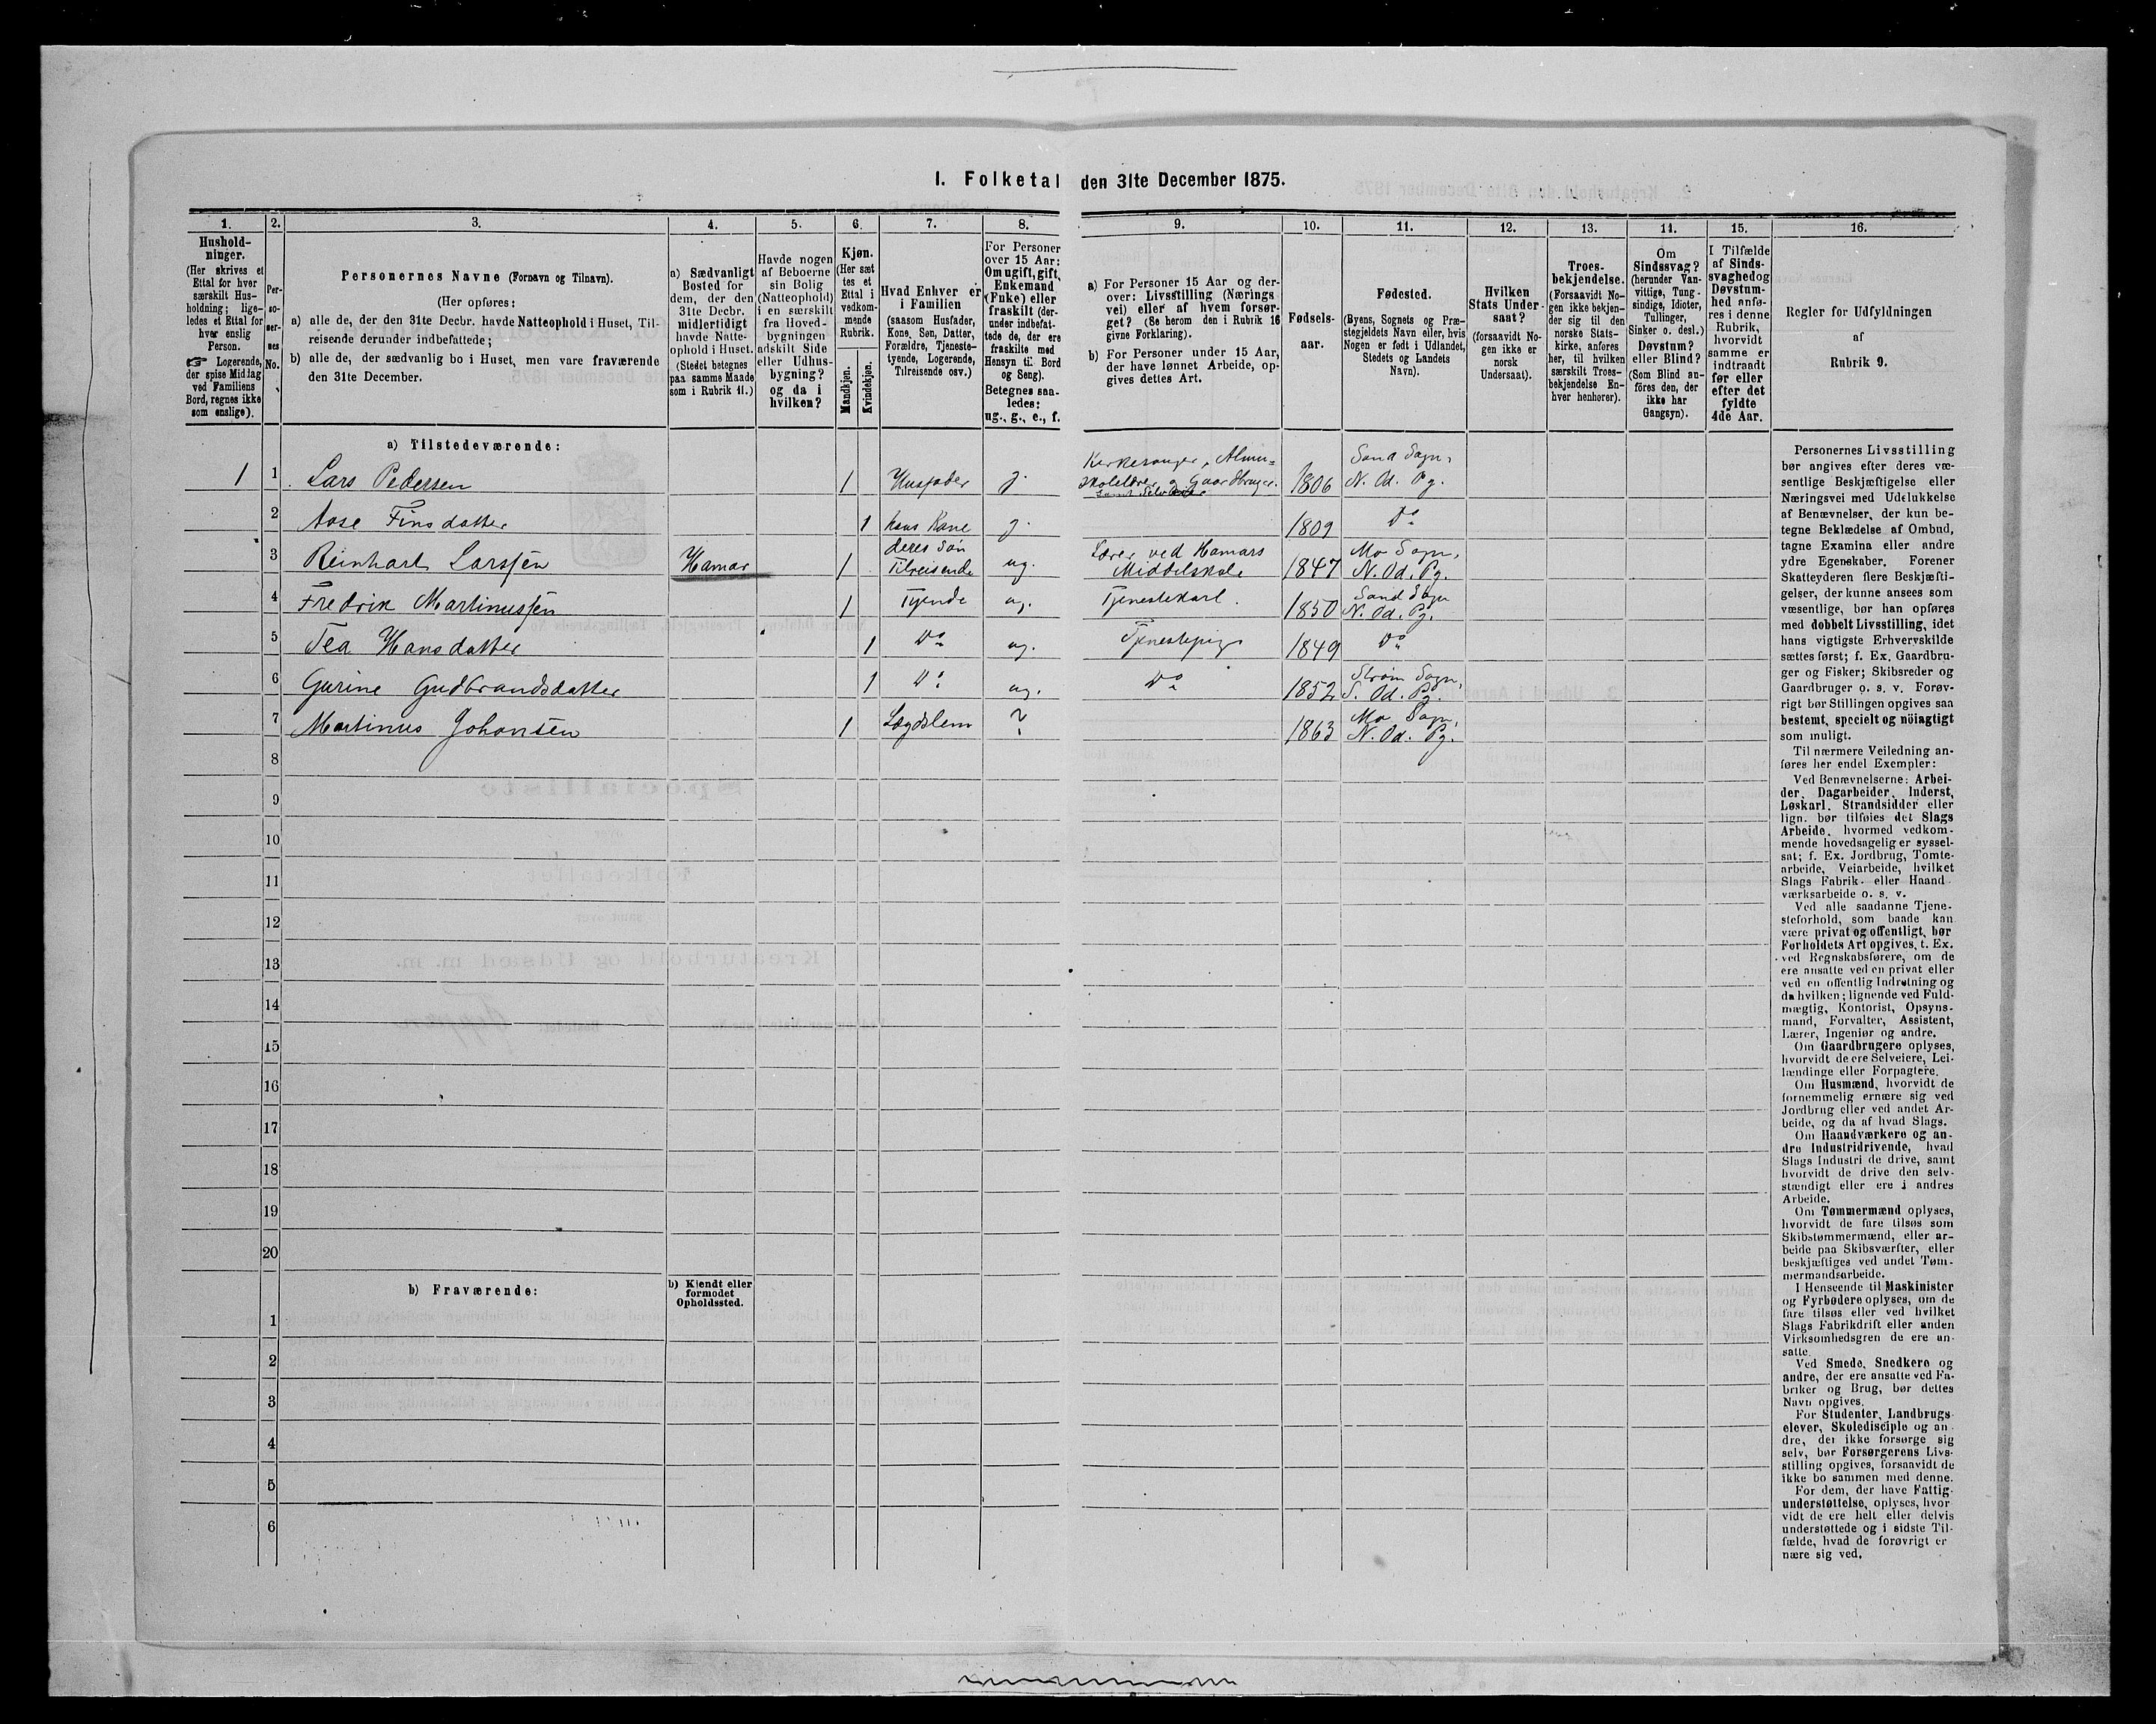 I. Folketal den 31te December 1875.
1.
Hushold-
ninger.
(Her skrives et
Ettal for hver
særskilt Hus-
holdning; lige-
ledes et Ettal for
hver enslig
Person.
☞ Logerende,
der spise Middag
ved Familiens
Bord, regnes ikke
som enslige).
2.
Per-
so-
ner-
nes
No.
3.
Personernes Navne (Fornavn og Tilnavn).
(Her opføres:
a) alle de, der den 31te Decbr. havde Natteophold i Huset, Til-
reisende derunder indbefattede;
b) alle de, der sædvanlig bo i Huset, men vare fraværende
den 31te December.
4.
a) Sædvanligt
Bosted for
dem, der den
31te Decbr.
midlertidigt
havde Natte-
ophold i Huset.
(Stedet betegnes
paa samme Maade
som i Rubrik 11.)
5.
Havde nogen
af Beboerne
sin Bolig
(Natteophold)
i en særskilt
fra Hoved-
bygningen
adskilt Side
eller Udhus-
bygning?
og da i
hvilken?
6.
Kjøn.
(Her sæt
tes et
Ettal i
vedkom-
mende
Rubrik.
Mandkjøn.
Kvindekjøn.
7.
Hvad Enhver er
i Familien
(saasom Husfader,
Kone, Søn, Datter,
Forældre, Tjeneste-
tyende, Logerende,
Tilreisende osv.)
8.
For Personer
over 15 Aar:
Om ugift, gift,
Enkemand
(Enke) eller
fraskilt (der-
under indbefat-
tede de, der ere
fraskilte med
Hensyn til Bord
og Seng).
Betegnes saa-
ledes:
ug., g., e., f.
9.
a) For Personer 15 Aar og der-
over: Livsstilling (Nærings
vei) eller af hvem forsør-
get? (Se herom den i Rubrik 16
givne Forklaring).
b) For Personer under 15 Aar,
der have lønnet Arbeide, op-
gives dettes Art.
10.
Fødsels-
aar.
11.
Fødested.
(Byens, Sognets og Præ-
stegjeldets Navn eller, hvis
Nogen er født i Udlandet,
Stedets og Landets
Navn).
12.
Hvilken
Stats Under-
saat?
(forsaavidt No-
gen ikke er
norsk
Undersaat).
13.
Troes-
bekjendelse.
(Forsaavidt No-
gen ikke bekjen-
der sig til den
norske Stats-
kirke, anføres
her, til hvilken
særskilt Troes-
bekjendelse En-
hver henhører).
14.
Om
Sindssvag?
(herunder Van-
vittige, Tung-
sindige, Idioter,
Tullinger,
Sinker o. desl.)
Døvstum?
eller Blind?
(Som Blind an-
føres den, der
ikke har
Gangsyn).
15.
I Tilfælde
af Sinds-
svaghed og
Døvstum-
hed anfø-
res i denne
Rubrik,
hvorvidt
samme er
indtraadt
før eller
efter det
fyldte
4de Aar.
16.
Regler for Udfyldningen
af
Rubrik 9.
a) Tilstedeværende:
1 1 Lars Pedersen 1 Husfader g. Kirkesanger, Almu=
skolelærer og Gaardbruger. 1806 Sand Sogn,
N. Od. Pg.
samt Selveier
2 Aase Finsdatter 1 hans Kone g. 1809 Do
3 Reinhart Larssen Hamar 1 deres Søn
Tilreisende ug. Lærer ved Hamars
Middelskole 1847 Mo Sogn,
N. Od. Pg.
4 Fredrik Martinussen 1 Tyende ug. Tjenestekarl. 1850 Sand Sogn
N. Od. Pg.
5 Tea Hansdatter 1 Do ug. Tjenestepige 1849 Do
6 Gurine Gudbrandsdatter 1 Do ug. Do 1852 Strøm Sogn,
S. Od. Pg.
7 Martinus Johansen 1 Lægdslem ? 1863 Mo Sogn,
N. Od. Pg.
8
9
10
11
12
13
14
15
16
17
18
19
20
b) Fraværende:
b) Kjendt eller
formodet
Opholdssted.
1
2
3
4
5
6
Personernes Livsstilling
bør angives efter deres væ-
sentlige Beskjæftigelse eller
Næringsvei med Udelukkelse
af Benævnelser, der kun be-
tegne Beklædelse af Ombud,
tagne Examina eller andre
ydre Egenskaber. Forener
Skatteyderen flere Beskjæfti-
gelser, der kunne ansees som
væsentlige, bør han opføres
med dobbelt Livsstilling, idet
hans vigtigste Erhvervskilde
sættes først; f. Ex. Gaardbru-
ger og Fisker; Skibsreder og
Gaardbruger o. s. v. Forøv-
rigt bør Stillingen opgives saa
bestemt, specielt og nöiagtigt
som muligt.
Til nærmere Veiledning an-
føres her endel Exempler:
Ved Benævnelserne: Arbei-
der, Dagarbeider, Inderst,
Løskarl, Strandsidder eller
lign. bør tilføies det Slags
Arbeide, hvormed vedkom-
mende hovedsagelig er syssel-
sat; f. Ex. Jordbrug, Tomte-
arbeide, Veiarbeide, hvilket
Slags Fabrik- eller Haand
værksarbeide o. s. v.
Ved alle saadanne Tjene-
steforhold, som baade kan
være privat og offentligt, bør
Forholdets Art opgives, t. Ex.
ved Regnskabsførere, om de
ere ansatte ved en privat eller
ved en offentlig Indretning og
da hvilken; lignende ved Fuld-
mægtig, Kontorist, Opsyns-
mand, Forvalter, Assistent,
Lærer, Ingeniør og andre.
Om Gaardbrugere oplyses,
hvorvidt de ere Selveiere, Lei-
lændinge eller Forpagtere.
Om Husmænd, hvorvidt de
fornemmelig ernære sig ved
Jordbrug eller ved andet Ar-
beide, og da af hvad Slags.
Om Haandværkere og an-
dre Industridrivende, hvad
Slags Industri de drive, samt
hvorvidt de drive den selv-
stændigt eller ere i andres
Arbeide.
Om Tømmermænd oplyses,
hvorvidt de fare tilsøs som
Skibstømmermænd, eller ar-
beide paa Skibsværfter, eller
beskjæftiges ved andet Tøm-
mermandsarbeide.
I Henseende til Maskinister
og Fyrbødere oplyses, om de
fare tilsøs eller ved hvilket
Slags Fabrikdrift eller anden
Virksomhedsgren de ere an-
satte.
Ved Smede, Snedkere og
andre, der ere ansatte ved Fa-
briker og Brug, bør dettes
Navn opgives.
For Studenter, Landbrugs-
elever, Skoledisciple og an-
dre, der ikke forsørge sig
selv, bør Forsørgerens Livs-
stilling opgives, forsaavidt de
ikke bo sammen med denne.
For dem, der have Fattig-
understøttelse, oplyses, hvor
vidt de ere helt eller delvis
understøttede og i sidste Til-
fælde, hvad de forøvrigt er
nære sig ved.